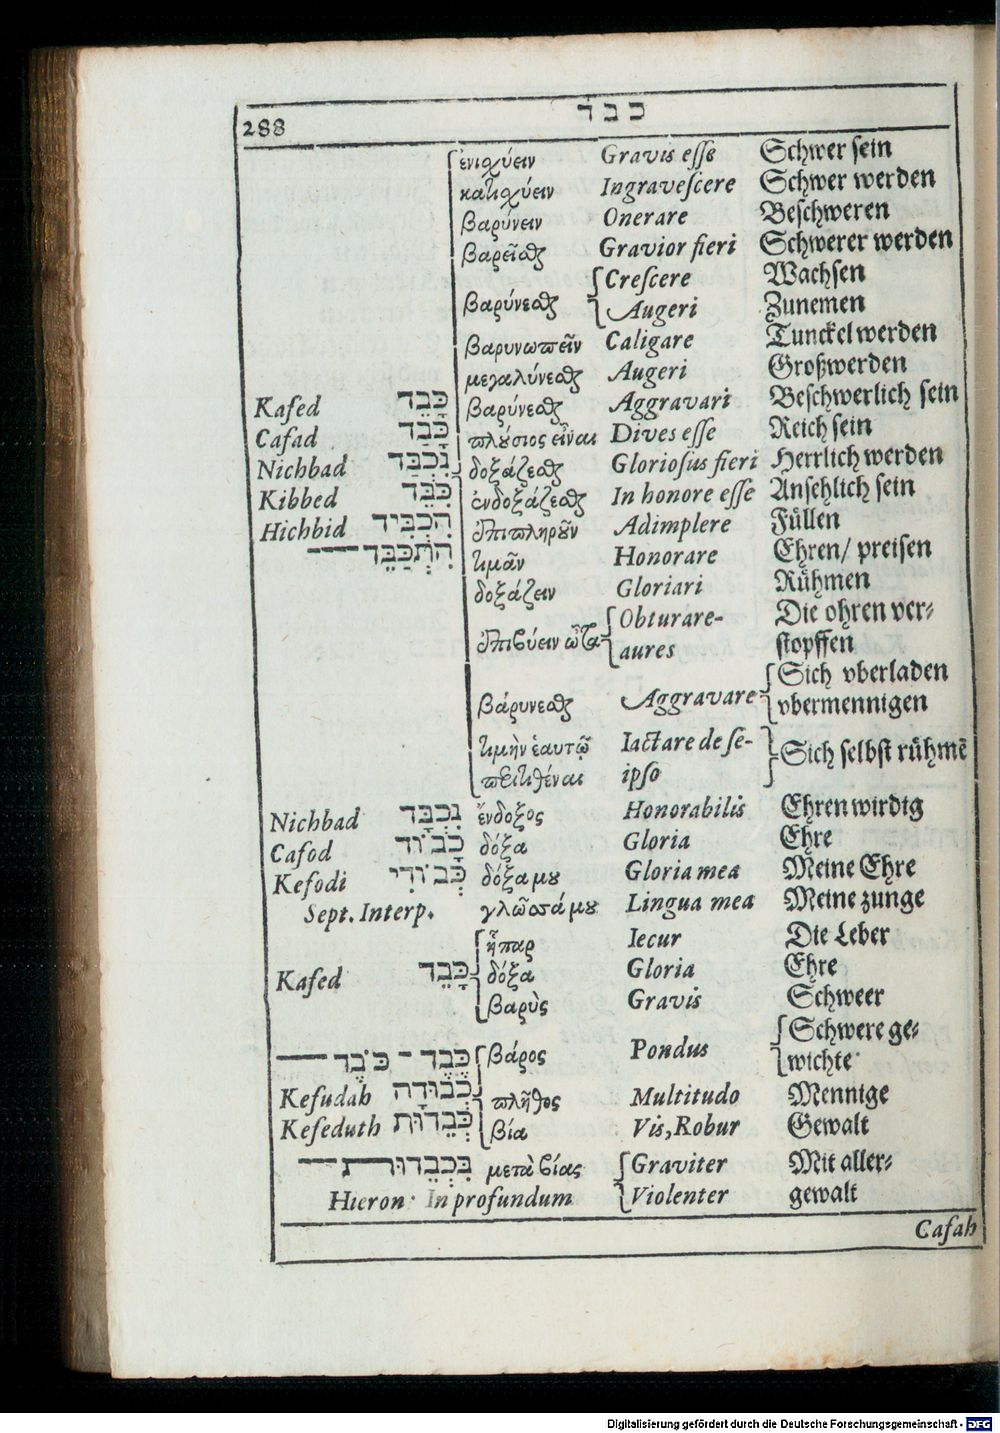 288 כבד
ἐνισχύειν Gravis esse Schwer sein
κατισχύειν Ingravescere Schwer werden
βαρύνειν Onerare Beschweren
βαρεῖσθαι Gravior fieri Schwerer werden
Crescere Wachsen
βαρύνεσθαι Augeri Zunemen
βαρυνωπεῖν Caligare Tunckel werden
μεγαλύνεσθαι Augeri Großwerden
Kafed כָּבֵד βαρύνεσθαι Aggravari Beschwerlich sein
Cafad כָּבַד πλούσιος εἶναι Dives esse Reich sein
Nichbad נִכְבַּד δοξάζεσθαι Gloriosus fieri Herrlich werden
Kibbed כִּבֵּד ἐνδοξάζεσθαι In honore esse Ansehlich sein
Hichbid הִכְבִּיד ἐπιπληροῦν Adimplere Füllen
הִתְכַּבֵּד τιμᾶν Honorare Ehren/ preisen
δοξάζειν Gloriari Rühmen
Obturare- Die ohren ver-
ἐπιβύειν ὦτα aures stopffen
Sich vberladen
βάρυνεσθαι Aggravare vbermennigen
τιμὴν ἑαυτῷ Iactare de se- Sich selbst rühmē
περιτιθέναι ipso
Nichbad נִכְבָּד ἔνδοξος Honorabilis Ehren wirdig
Cafod כָּבוֹד δόξα Gloria Ehre
Kefodi כְּבוֹדִי δόξα μου Gloria mea Meine Ehre
Sept. Interp. γλῶσσά μου Lingua mea Meine zunge
ἧπαρ Iecur Die Leber
Kafed כָּבֵד δόξα Gloria Ehre
βαρὺς Gravis Schweer
Schwere ge-
כֹּבֶד - כֹּבֶד βάρος Pondus wichte
Kefudah כְּבוּדָה πλῆθος Multitudo Mennige
Kefeduth כְּבֵדוּת βία Vis, Robur Gewalt
בִּכְבֵדוּת μετὰ βίας Graviter Mit aller-
Hieron. In profundum Violenter gewalt
Cafah
Digitalisierung gefördert durch die Deutsche Forschungsgemeinschaft - DFG